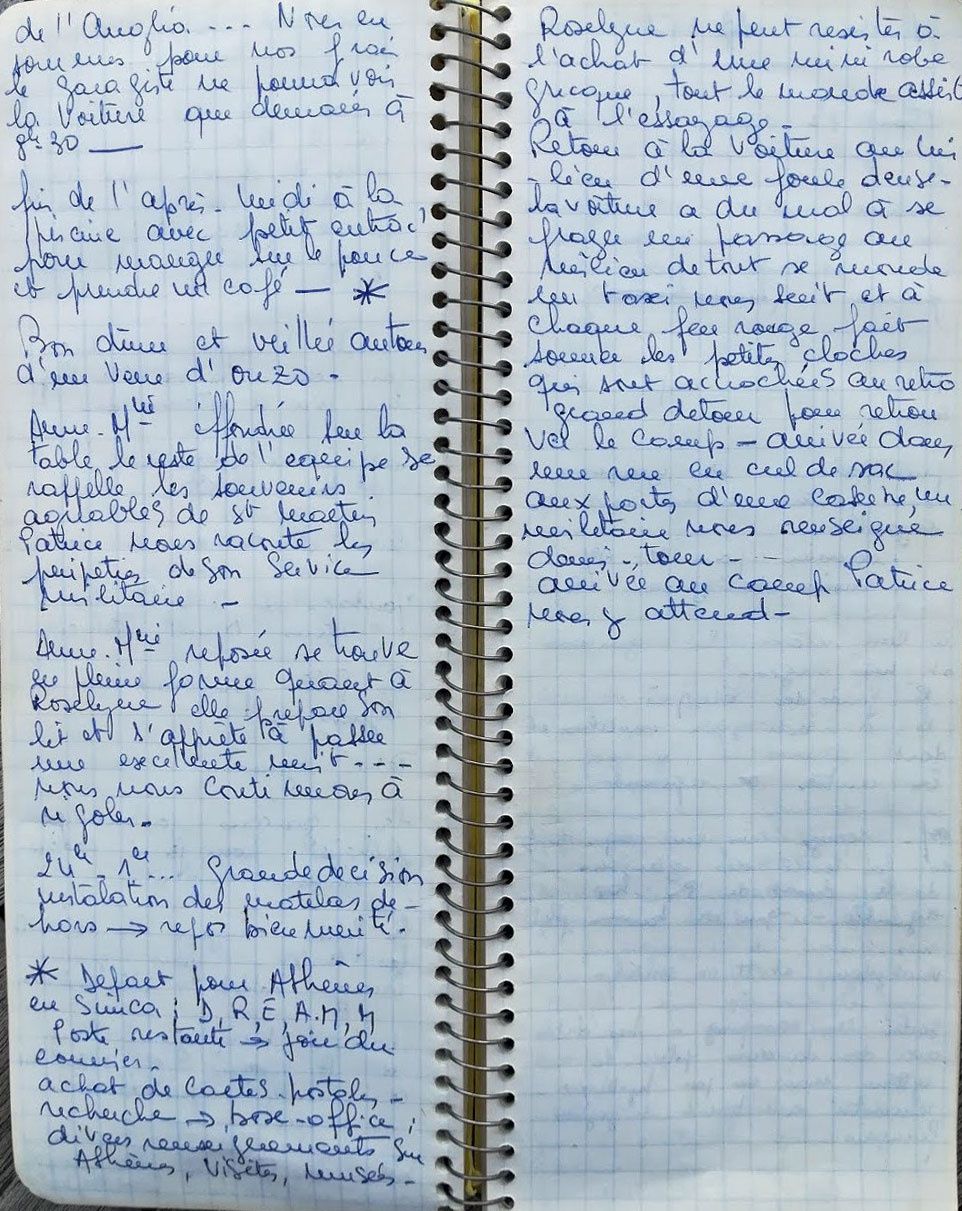 de l'Anglia... Nous en
sommes pour nos frais
le garagiste ne pourra voir
la voiture que demain à
8h 30 —
fin de l'après-midi à la
piscine avec petit entrac'
pour manger sur le pouce
et prendre un café — *
Bon dîner et veillée autour
d'un verre d'ouzo -
Anne-Mrie effondrée sur la
table, le reste de l'equipe se
rappelle les souvenirs
agréables de St Martin
Patrice nous raconte les
peripeties de son Service
militaire -
Anne-Mrie reposée se trouve
en pleine forme quant à
Roselyne elle prépare son
lit et s'apprète à passer
une excellente nuit ---
nous nous continuons à
rigoler.
24h - 1h... Grande decision
instalation des matelas de-
hors → repos bien mérité.
* Depart pour Athènes
en Simca : D, R, E, A.M, M
Poste restante → joie du
courrier.
achat de cartes-postales -
recherche → box-office ;
divers renseignements sur
Athènes, visites, musées -
Roselyne ne peut resister à
l'achat d'une mini robe
grecque, tout le monde assiste
à l'essayage -
Retour à la voiture au mi
-lieu d'une foule dense-
la voiture a du mal à se
frayer un passage au
milieu de tout se monde
un taxi nous suit et à
chaque feu rouge fait
sonner les petites cloches
qui sont accrochées au retro
grand detour pour retrou
ver le camp - arrivée dans
une rue en cul de sac
aux portes d'une caserne, un
militaire nous renseigne
demi-tour -
arrivée au camp Patrice
nous y attend -